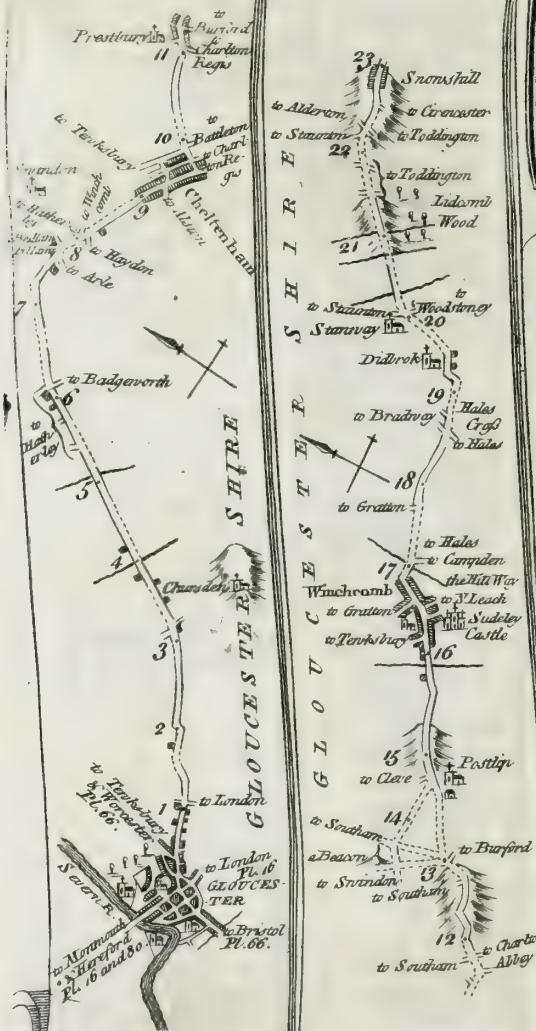 Prestbury
to
Burford
&
Charlton
Regis
11
10
to
Battleton
to Charl
ton Re-
gis
to Tewksbury
Cheltenham
Swindon
to Winch
comb
9
to Alston
8
to Haydon
to Arle
7
6
to Badgeworth
to
Hath
erley
5
4
Chursden
3
2
1
to London
to Tewksbury
& Worcester
Pl. 66.
Severn R.
to London
Pl. 16
GLOUCES-
TER
to Bristol
Pl. 66.
to Monmouth
& Hereford
Pl. 16 and 80
GLOUCESTER SHIRE
GLOUCESTER SHIRE
23
Snowshill
to Alderton
to Cirencester
to Staunton
to Toddington
22
to Toddington
Lidcomb
Wood
21
to Staunton
to
Woodstoney
Stanway
20
Didbrok
19
to Bradway
Hales
Croß
to Hales
18
to Gratton
to Hales
to Campden
17
the Hill Way
Winchcomb
to N. Leach
to Gratton
Sudeley
Castle
to Tewksbury
16
15
Postlip
to Cleve
14
to Southam
a Beacon
to Burford
to Swindon
13
to Southam
12
to Charlto
Abbey
to Southam